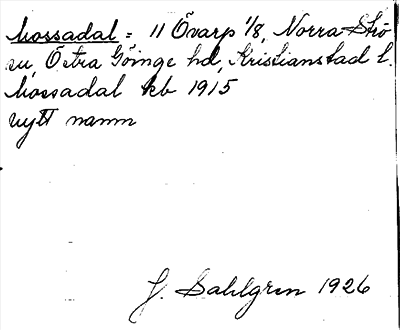 Mossadal = 11 Övarp 1/8, Norra Strö
su, Östra Göinge hd, Kristianstad l.
Mossadal kb 1915
nytt namn
J. Sahlgren 1926